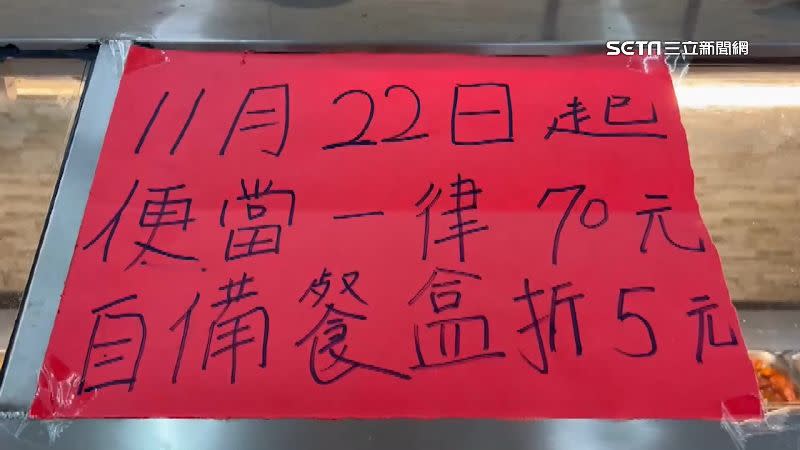 SETN三立新聞網
11月22日起
便當一律70元
自備餐盒折5元